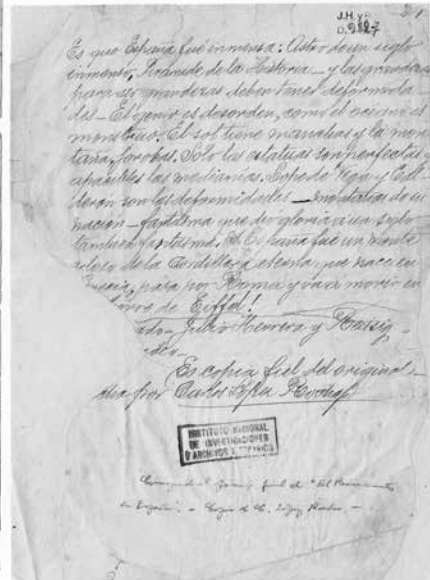 J.H. y
D.
Es que España fué inmensa: Astro de un siglo
inmenso, Pirámide de la Historia — y las grandezas
para ser grandezas deben tener deformida
des — El genio es desorden, como el océano es
monstruo. El sol tiene manchas y la mon
taña, jorobas. Solo las estatuas son perfectas y
apacibles las medianías. Lope de Vega y Cal
deron son las deformidades — montañas de su
nacion — fantasma que dió gloria a un siglo
tambien fantasma. España fué un monte
de la Cordillera eterna, que nace en
pasa por Roma y va a morir en
Torre de Eiffel!
Julio Herrera y Reissig
Es copia fiel del original
por Carlos López Rocha
INSTITUTO NACIONAL
DE INVESTIGACIONES
Y ARCHIVOS LITERARIOS
final de "El Renacimiento
en España". — Copia de C. López Rocha. —